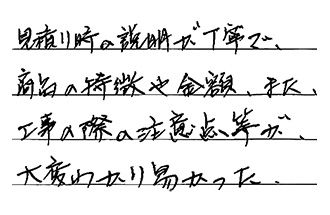 見積り時の説明が丁寧で、
商品の特徴や金額、また、
工事の際の注意点等が、
大変わかり易かった.